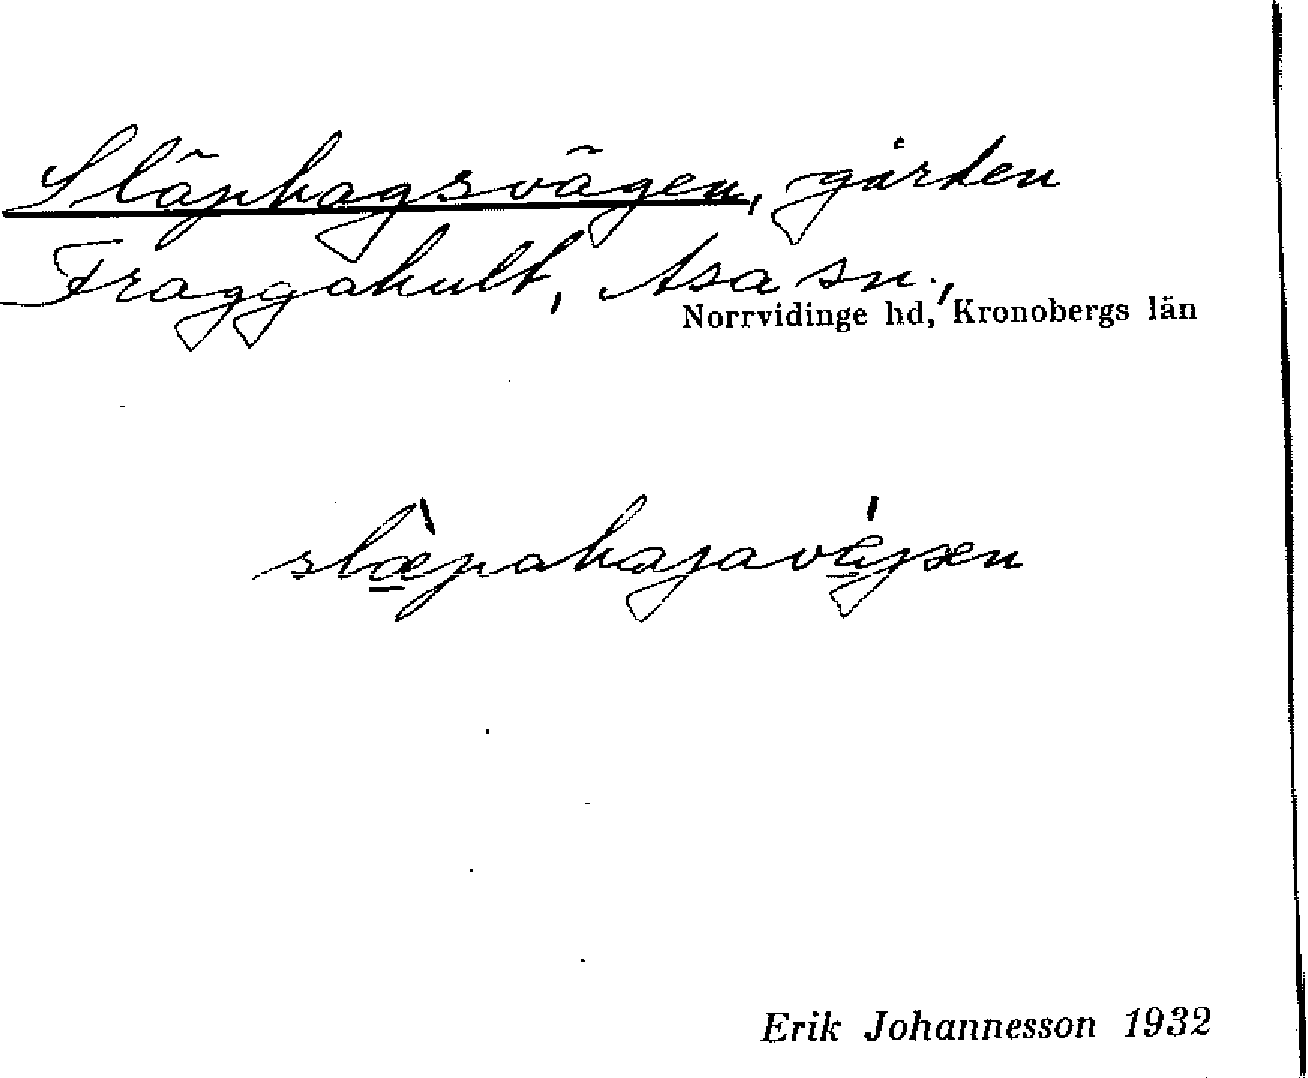 Släphagsvägen, gården
Fraggakult, Asa sn.,
Norrvidinge hd, Kronobergs län
slæpahagavägen
Erik Johannesson 1932